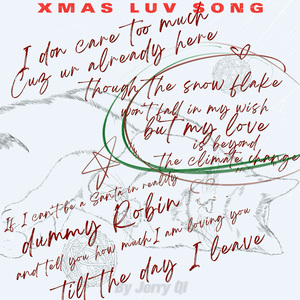 XMAS LUV $ONG
I don care too much
Cuz ur already here
Though the snow flake
won't fall in my wish
but my love
is beyond
the climate change
If I can't be a Santa in reality
dummy Robin
and tell you how much I am loving you
till the day I leave
By Jerry QI